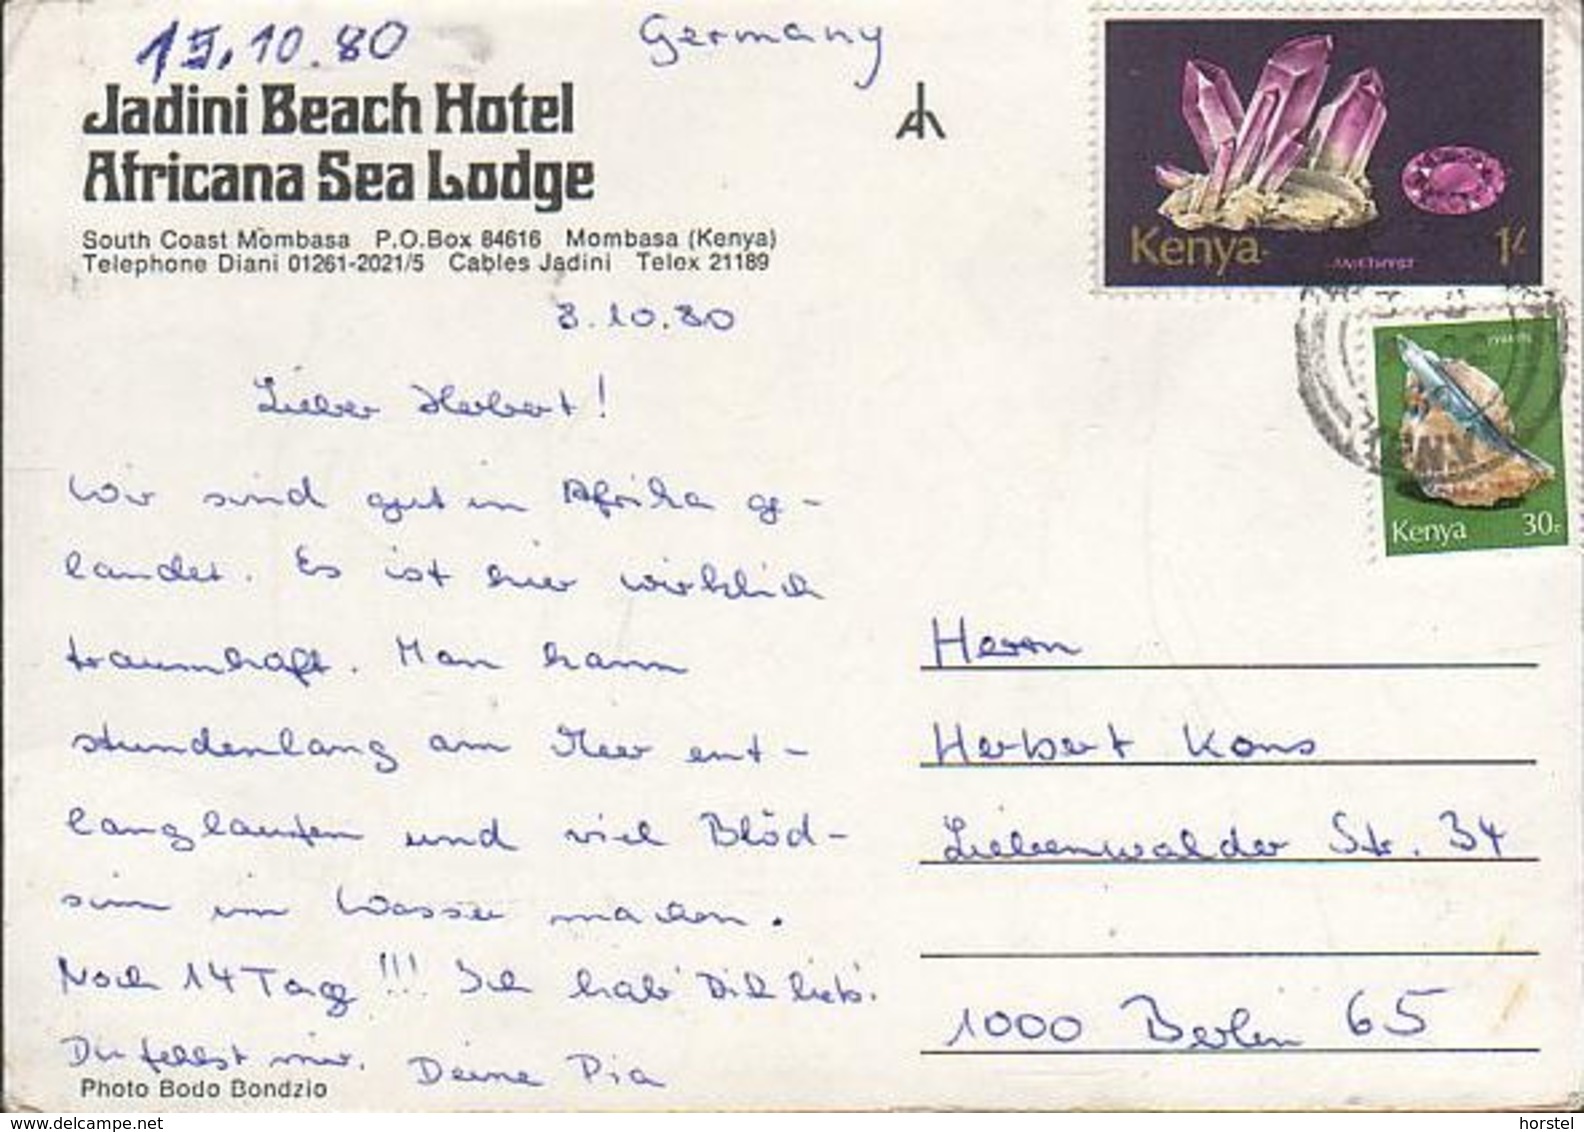 15.10.80
Germany
Jadini Beach Hotel
Africana Sea Lodge
South Coast Mombasa P.O.Box 84616 Mombasa (Kenya)
Telephone Diani 01261-2021/5 Cables Jadini Telex 21189
Kenya 1/-
AMETHYST
Kenya 30c
KENYA
8.10.80
Lieber Herbert!
Wir sind gut in Afrika ge-
landet. Es ist hier wirklich
traumhaft. Man kann
stundenlang am Meer ent-
langlaufen und viel Blöd-
sinn im Wasser machen.
Noch 14 Tage!!! Ich hab' Dich lieb.
Du fehlst mir. Deine Pia
Photo Bodo Bondzio
Herrn
Herbert Kons
Liebenwalder Str. 34
1000 Berlin 65
delcampe.net
horstel